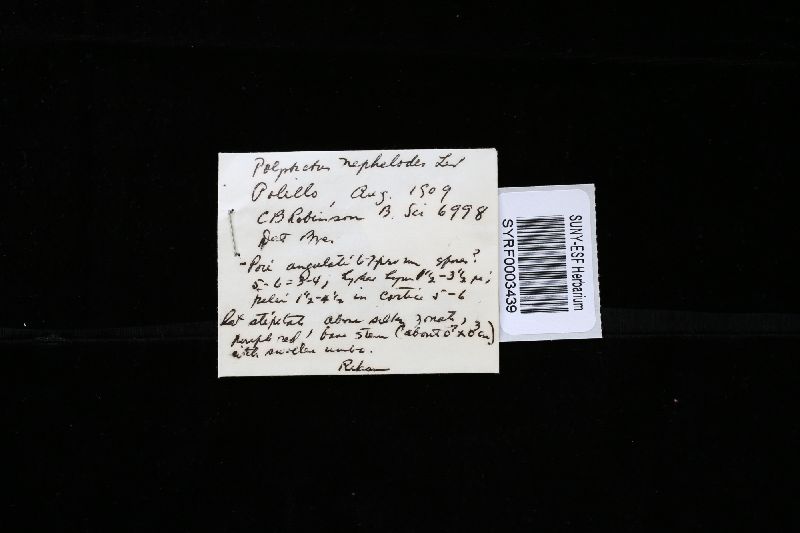 Polystictus nephelodes Lev
Polillo, Aug. 1909
C B Robinson B. Sci 6998
Det Bres
- Pori angulati 6-7 pr mm spores?
5-6 = 3-4; hyphae hym 1½-3½ µ;
pilei 1½-4½ in cortice 5-6
lat stipitate above silky zonate,
purple red! bare stem (about 0.7 x 0.3 cm)
with swollen umbo.
SUNY-ESF Herbarium
SYRF0003439